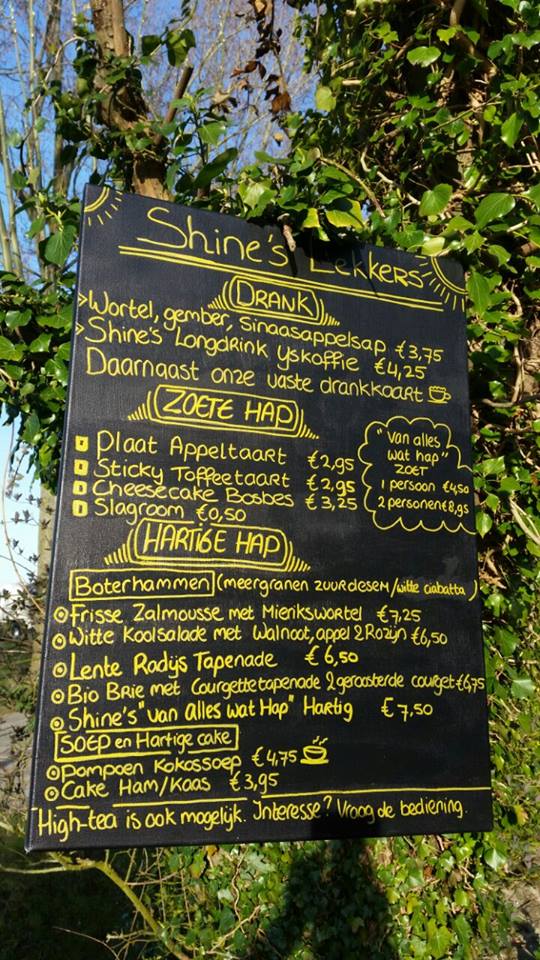 Shine's Lekkers
DRANK
>Wortel, gember, Sinaasappelsap €3,75
>Shine's Longdrink yskoffie €4,25
Daarnaast onze vaste drankkaart
ZOETE HAP
Plaat Appeltaart €2,95
Sticky Toffeetaart €2,95
Cheesecake Bosbes €3,25
Slagroom €0,50
"Van alles
wat hap"
ZOET
1 persoon €4,50
2 personen €8,95
HARTIGE HAP
Boterhammen (meergranen zuurdesem/witte ciabatta)
Frisse Zalmousse met Mierikswortel €7,25
Witte Koolsalade met Walnoot, appel & Rozijn €6,50
Lente Radijs Tapenade €6,50
Bio Brie met Courgettetapenade & geroosterde courget €6,75
Shine's "van alles wat Hap" Hartig €7,50
SOEP en Hartige cake
Pompoen Kokossoep €4,75
Cake Ham/Kaas €3,95
High-tea is ook mogelijk. Interesse? Vraag de bediening.